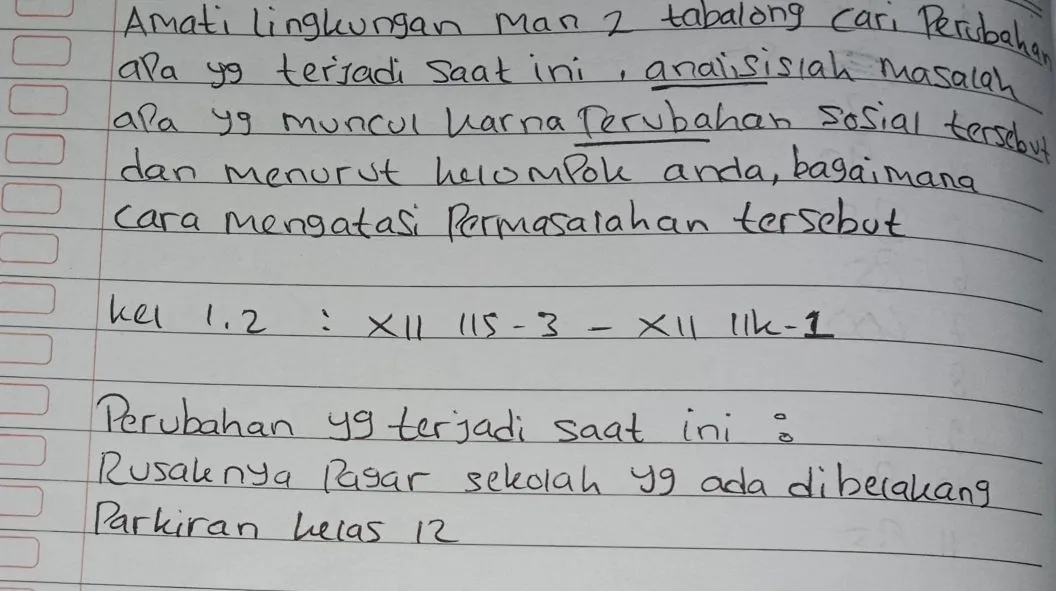 Amati lingkungan Man 2 tabalong cari Perubahan
apa yg terjadi saat ini, anaiisislah Masalah
apa yg muncul karna Perubahan sosial tersebut
dan menurut kelompok anda, bagaimana
cara mengatasi Permasalahan tersebut
kel 1.2 : XII IIS - 3 - XII IIK - 1
Perubahan yg terjadi saat ini :
Rusaknya Pagar sekolah yg ada dibelakang
Parkiran kelas 12